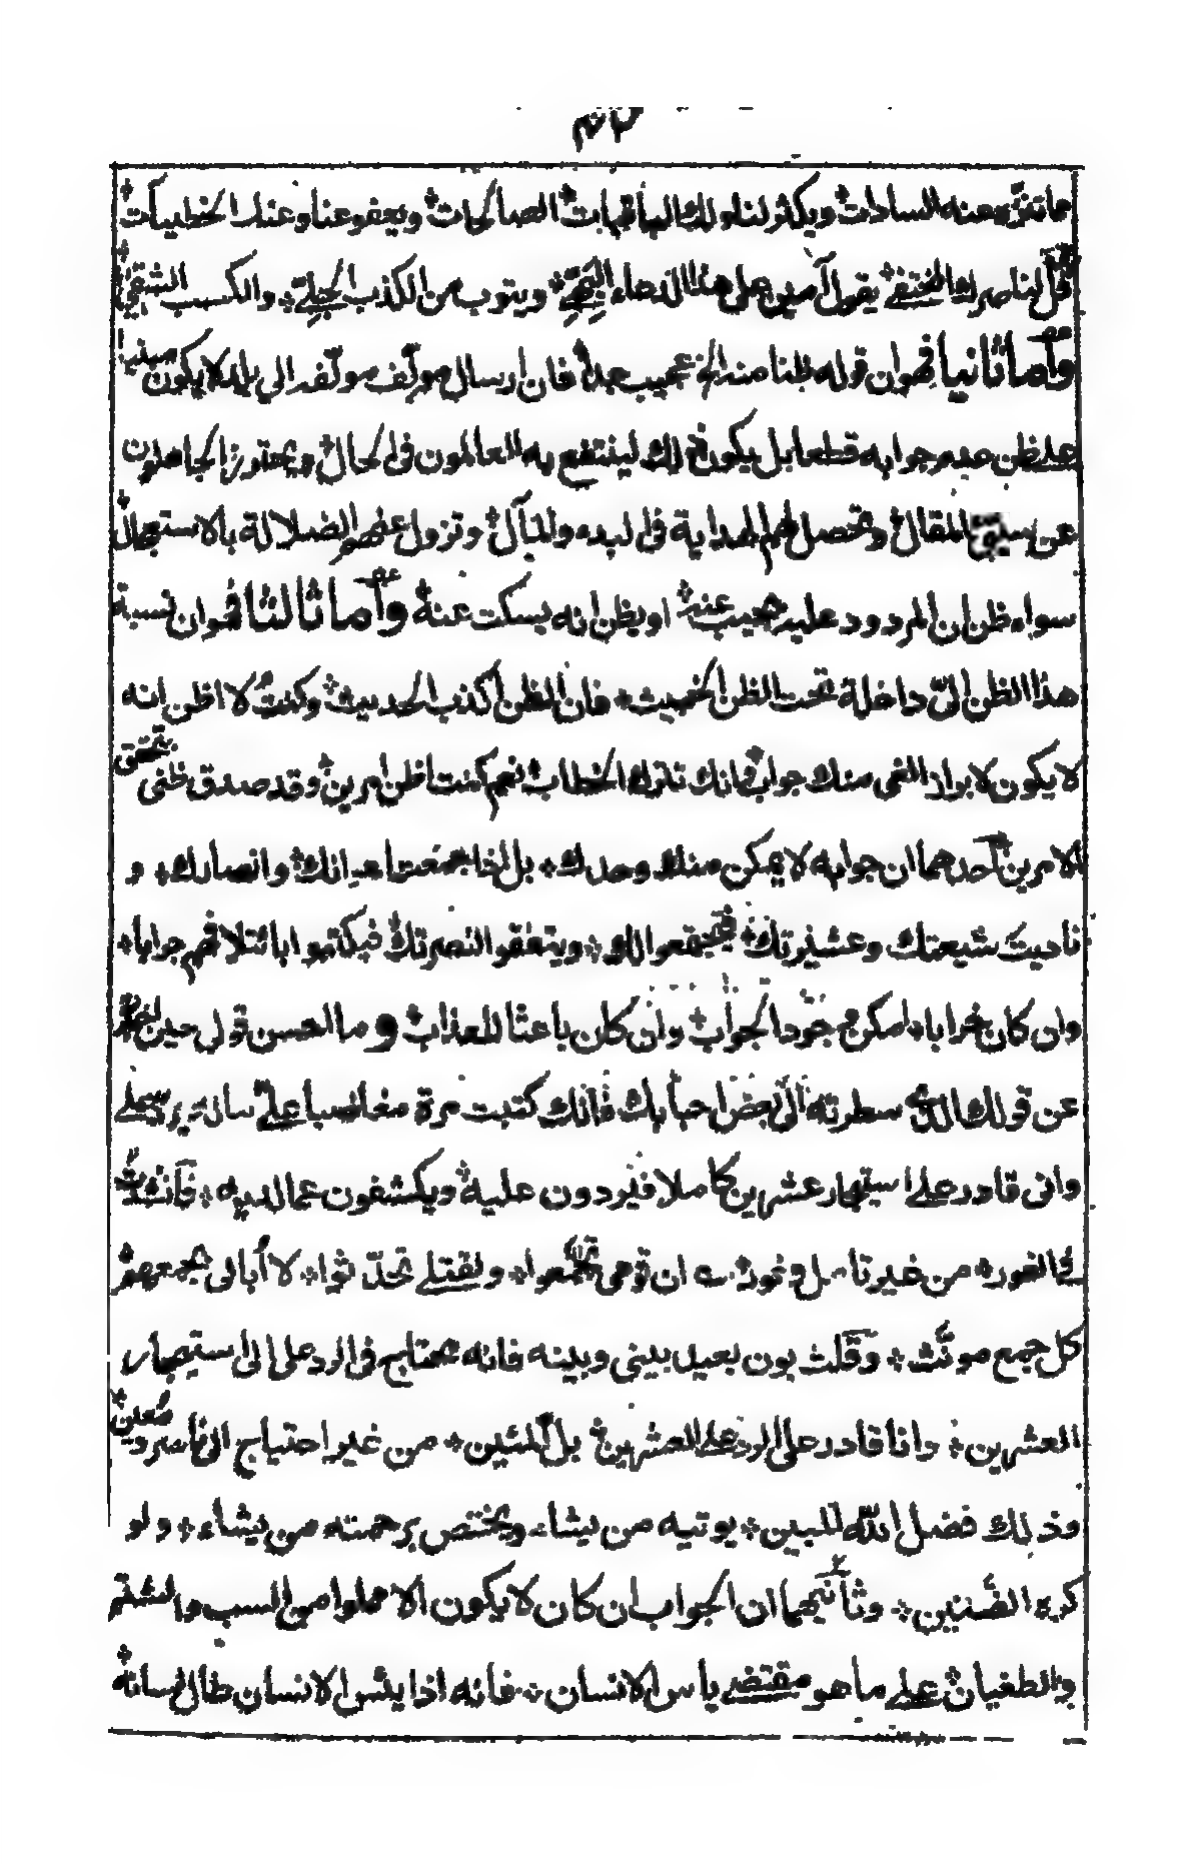 ما تتنزه عنه السادات ويكثر لنا ولك الباقيات الصالحات ويعفو عنا وعنك الخطيئات
قل لناصرك المختفي يقول آمين على هذا الدعاء البهي ويتوب من الكذب الجلي والكسب الشقي
وأما ثانيا فهو ان قوله ظنا منه الخ عجيب جدا فان ارسال مؤلف مؤلفه الى بلد لا يكون مبنيا
على ظن عدم جوابه قطعا بل يكون ذلك لينتفع به العالمون في الحال ويحترز الجاهلون
عن المقال وتحصل لهم الهداية في البدء والمآل وتزول عنهم الضلالة بالاستعجال
سواء ظن ان المردود عليه مجيب عنه او يظن انه يسكت عنه وأما ثالثا فهو ان نسبة
هذا الظن الي داخلة تحت الظن الخبيث فان الظن أكذب الحديث وكنت لا اظن انه
لا يكون لابراز الغي منك جواب فانك تترك الخطاب نعم كنت اظن امرين وقد صدق ظني بتحقق
الامرين أحدهما ان جوابه لا يمكن منك وحدك بل اذا جمعت اعوانك وانصارك و
ناديت شيعتك وعشيرتك فيجتمعوا لك ويتفقوا لنصرتك فيكتبوا بائتلافهم جوابا
وان كان خرابا امكن وجود الجواب وان كان باعثا للعذاب وما احسن قولي حين
عن قولك الذي سطرته الى بعض احبابك فانك كتبت مرة مغاضبا على رسالة
واني قادر على استيجار عشرين كاملا فيردون عليه ويكشفون عما لديه فأنشدت
على الفور من غير تأمل وغور ان قومي تجمعوا وبقتلي تحدثوا لا أبالي بجمعهم
كل جمع مؤنث وقلت بون بعيد بيني وبينه فانه محتاج في الرد على الى استيجار
العشرين وانا قادر على الرد على العشرين بل المئين من غير احتياج الى ناصر ومعين
وذلك فضل الله المبين يوتيه من يشاء ويختص برحمته من يشاء ولو
كره الضنين وثانيهما ان الجواب ان كان لا يكون الا مملوا من السب والشتم
والطغيان على ما هو مقتضى يأس الانسان فانه اذا يئس الانسان طال لسانه